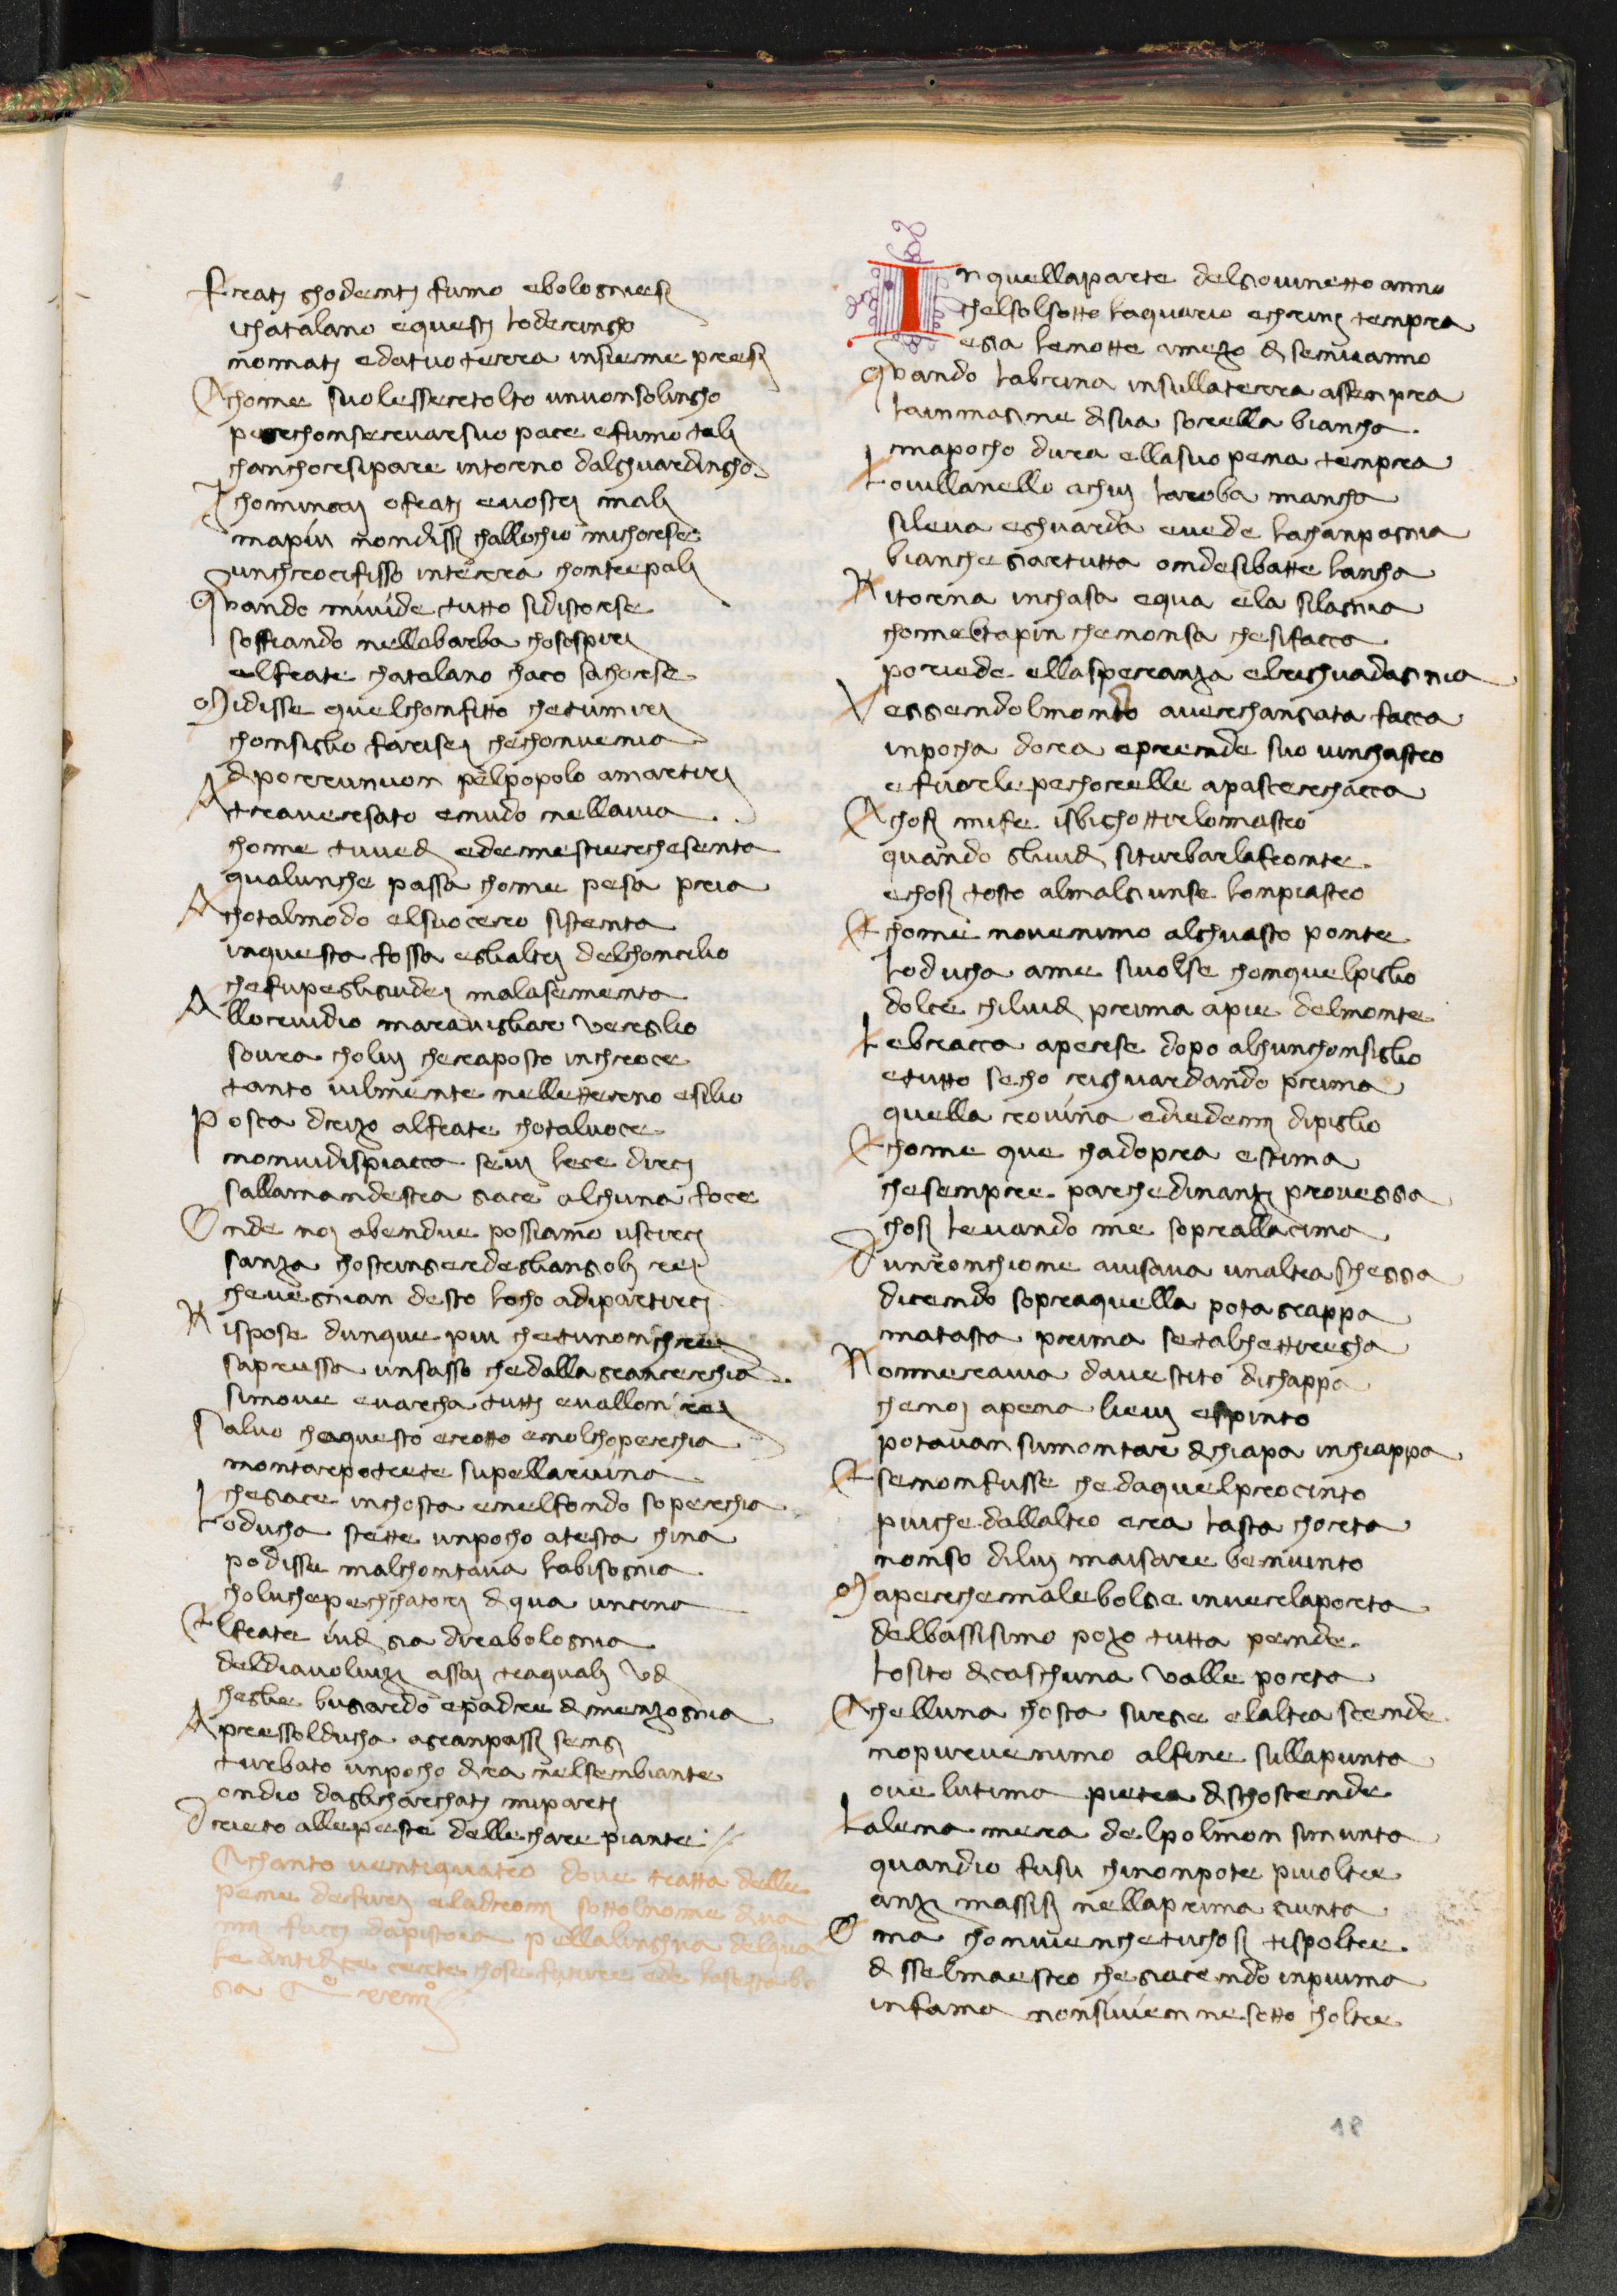 Frati ghodenti fumo ebolognesi
ichatalano equesti loderingho
nomati edatuo terra insieme presi
Chome suolesseretolto unuonsolingho
perchonservarsuo pace efumo tali
chanchorsipare intorno dalghuardingho
Ichominciai ofrati evostri mali
mapiu nondissi challochio michorse
unchrocifisso interra chontrepali
Quando mivide tutto sidistorse
soffiando nellabarba chosospiri
elfrate chatalano chaco sachorse
Midisse quelchonfitto chetumiri
chonsiglio farisei chechonvenia
di porreunuon pelpopolo amartiri
Attraversato enudo nellavia
chome tuvedi edemestierchesenta
qualunche passa chome pesa pria
Achotalmodo elsuocero sistenta
inquesta fossa eglialtri delchoncilio
chefupeglgiudei malasementa
Allorvidio maravigliare vergilio
sovra cholui cheraposto inchroce
tanto vilmente nelletterno esilio
Poscia drizo alfrate chotalvoce
nonvidispiaccia sevi lece dirci
sallamandestra giace alchuna foce
Onde noi abendue possiamo uscirci
sanza chostringerdegliangoli neri
chevegnian desto locho adipartirci
Rispose dunque piu chetunonchreri
sapressa unsasso chedalla grancerchia
simove evarcha tutti evallon feri
Salvo chaquesto erotto enolchoperchia
montarepotrete supellaruina
chegiace inchosta enelfondo soperchia
Loducha stette unpocho atesta china
podisse malchontava labisognia
choluichepecchatori diqua uncina
Elfrate iudi gia direabolognia
deldiavolvizi assai traquali udi
cheglie bugiardo epadre di menzognia
Apressolducha agranpassi sengi
turbato unpocho dira nelsenbiante
ondio daglicharchati miparti
Drieto allepeste dellechare piante
Chanto ventiquatro dove tratta delle
pene defuri eladroni sottolnome diva
nni fucci dapistoia pellalinghua delqua
le antidice certe chose future

Inquellaparte delgiovinetto anno
chelsolsotto laquario echrini tempra
egia lenotte amezo di senvanno
Quando labrina insullaterra assenpra
lainmagine disua sorella biancha
mapocho dura ellasuo pena tempra
Lovillanello achui laroba mancha
sileva eghuarda evede lachanpagnia
bianchegiartutta ondesibatte lancha
Ritorna inchasa equa ela silagnia
chomeltapin chenonsa chesifaccia
poriede ellasperanza elrighuadagnia
Veggendolmondo averchangiata faccia
inpocha dora eprende suo vinchastro
efuorlepechorelle apascerchaccia
Chosi mife isbighottirlomastro
quando glividi siturbarlafronte
echosi tosto almalgiunse lonpiastro
Chome novenimo alghuasto ponte
loducha ame sivolse chonquelpiglio
dolce chiluidi prima apie delmonte
Lebraccia aperse dopo alchunchonsiglio
etutto secho righuardando prima
quella rovina ediedemi dipiglio
Chome que chadopra estima
chesempre parchedinanzi proveggia
chosi levando me sopreallacima
Dunronchione avisava unaltra scheggia
dicendo sopraquella pota grappa
matasta prima setalchettiregha
Nonneravia davestito dichappa
chenoi apena lievi espinto
potavan sumontar dichiapa inchiappa
Esenonfusse chedaquelprocinto
piuche dallaltro era lasta chorta
nonso dilui maisarie benvinto
Maperchemalebolge inverlaporta
delbassisimo pozo tutta pende
losito diciaschuna valle porta
Chelluna chosta surge elaltra scende
nopurvenimo alfine sullapunta
ove lutima pietra dischoscende
Lalena mera delpolmon simunta
quandio fusu chinonpote piuoltre
anzi massisi nellaprima giunta
Oma chonvienchetuchosi tispoltre
di sselmaestro chegiacendo inpiuma
infama nonsivien nesotto choltre
18